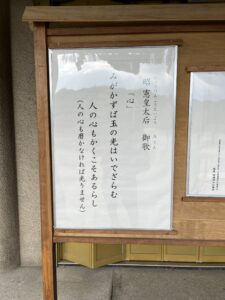 昭憲皇太后　御歌
「心」
みがかずば玉の光はいでざらむ
人の心もかくこそあるらし
（人の心も磨かなければ光りません）